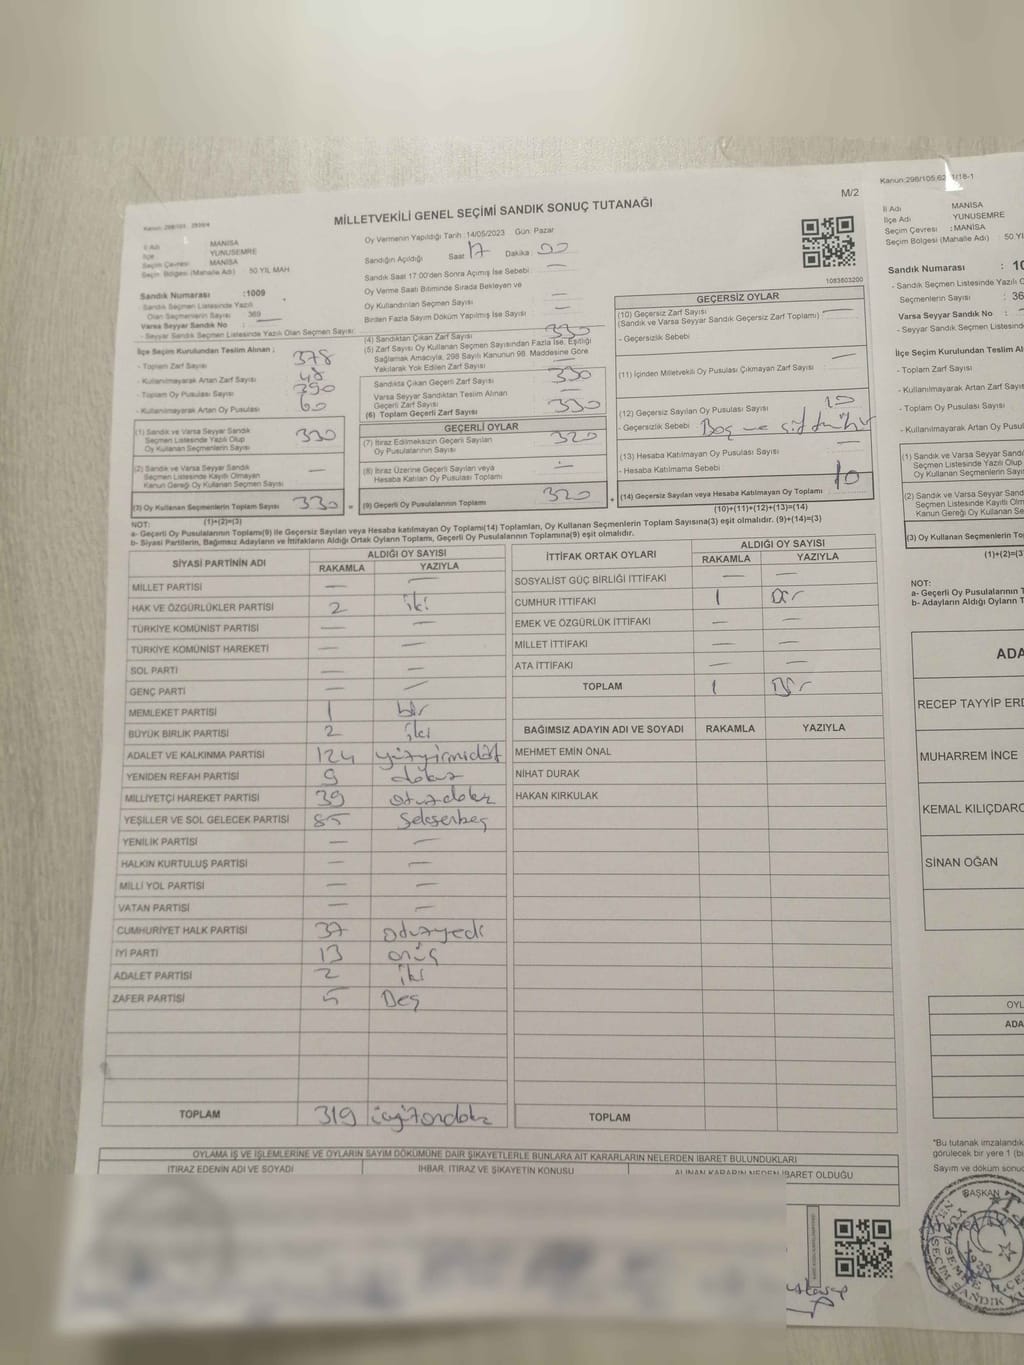 Kanun:298/105,
M/2
MİLLETVEKİLİ GENEL SEÇİMİ SANDIK SONUÇ TUTANAĞI
İl Adı MANİSA
İlçe YUNUSEMRE
Seçim Çevresi MANİSA
Seçim Bölgesi (Mahalle Adı) 50.YIL MAH
Sandık Numarası :1009
- Sandık Seçmen Listesinde Yazılı
Olan Seçmenlerin Sayısı 369
Varsa Seyyar Sandık No
- Seyyar Sandık Seçmen Listesinde Yazılı Olan Seçmen Sayısı
Oy Vermenin Yapıldığı Tarih :14/05/2023 Gün: Pazar
Sandığın Açıldığı Saat 17 Dakika : 00
Sandık Saat 17:00'den Sonra Açımış İse Sebebi : —
Oy Verme Saati Bitiminde Sırada Bekleyen ve
Oy Kullandırılan Seçmen Sayısı —
Birden Fazla Sayım Döküm Yapılmış İse Sayısı —
1083603200
İlçe Seçim Kurulundan Teslim Alınan ;
- Toplam Zarf Sayısı 378
- Kullanılmayarak Artan Zarf Sayısı 48
- Toplam Oy Pusulası Sayısı 390
- Kullanılmayarak Artan Oy Pusulası 60
(1) Sandık ve Varsa Seyyar Sandık
Seçmen Listesinde Yazılı Olup
Oy Kullanan Seçmenlerin Sayısı 330
(2) Sandık ve Varsa Seyyar Sandık
Seçmen Listesinde Kayıtlı Olmayan
Kanun Gereği Oy Kullanan Seçmen Sayısı —
(3) Oy Kullanan Seçmenlerin Toplam Sayısı 330 =
(1)+(2)=(3)
(4) Sandıktan Çıkan Zarf Sayısı 330
(5) Zarf Sayısı Oy Kullanan Seçmen Sayısından Fazla İse, Eşitliği
Sağlamak Amacıyla, 298 Sayılı Kanunun 98. Maddesine Göre
Yakılarak Yok Edilen Zarf Sayısı —
Sandıkta Çıkan Geçerli Zarf Sayısı 330
Varsa Seyyar Sandıktan Teslim Alınan
Geçerli Zarf Sayısı —
(6) Toplam Geçerli Zarf Sayısı 330
GEÇERLİ OYLAR
(7) İtiraz Edilmeksizin Geçerli Sayılan
Oy Pusulasının Sayısı 320
(8) İtiraz Üzerine Geçerli Sayılan veya
Hesaba Katılan Oy Pusulası Toplamı —
(9) Geçerli Oy Pusulalarının Toplamı 320 +
GEÇERSİZ OYLAR
(10) Geçersiz Zarf Sayısı —
(Sandık ve Varsa Seyyar Sandık Geçersiz Zarf Toplamı)
- Geçersizlik Sebebi
(11) İçinden Milletvekili Oy Pusulası Çıkmayan Zarf Sayısı —
(12) Geçersiz Sayılan Oy Pusulası Sayısı 10
- Geçersizlik Sebebi Boş ve çift mühür
(13) Hesaba Katılmayan Oy Pusulası Sayısı —
- Hesaba Katılmama Sebebi
(14) Geçersiz Sayılan veya Hesaba Katılmayan Oy Toplamı 10
(10)+(11)+(12)+(13)=(14)
NOT:
a- Geçerli Oy Pusulalarının Toplamı(9) ile Geçersiz veya Hesaba katılmayan Oy Toplamı(14) Toplamları, Oy Kullanan Seçmenlerin Toplam Sayısına(3) eşit olmalıdır. (9)+(14)=(3)
b- Siyasi Partilerin, Bağımsız Adayların ve İttifakların Aldığı Ortak Oyların Toplamı, Geçerli Oy Pusulalarının Toplamına(9) eşit olmalıdır.
SİYASİ PARTİNİN ADI ALDIĞI OY SAYISI
RAKAMLA YAZIYLA
MİLLET PARTİSİ — —
HAK VE ÖZGÜRLÜKLER PARTİSİ 2 iki
TÜRKİYE KOMÜNİST PARTİSİ — —
TÜRKİYE KOMÜNİST HAREKETİ — —
SOL PARTİ — —
GENÇ PARTİ — —
MEMLEKET PARTİSİ 1 bir
BÜYÜK BİRLİK PARTİSİ 2 iki
ADALET VE KALKINMA PARTİSİ 124 yüzyirmidört
YENİDEN REFAH PARTİSİ 9 dokuz
MİLLİYETÇİ HAREKET PARTİSİ 39 otuzdokuz
YEŞİLLER VE SOL GELECEK PARTİSİ 85 Seksenbeş
YENİLİK PARTİSİ — —
HALKIN KURTULUŞ PARTİSİ — —
MİLLİ YOL PARTİSİ — —
VATAN PARTİSİ — —
CUMHURİYET HALK PARTİSİ 37 otuzyedi
İYİ PARTİ 13 onüç
ADALET PARTİSİ 2 iki
ZAFER PARTİSİ 5 Beş
TOPLAM 319 üçyüzondokuz
İTTİFAK ORTAK OYLARI ALDIĞI OY SAYISI
RAKAMLA YAZIYLA
SOSYALİST GÜÇ BİRLİĞİ İTTİFAKI — —
CUMHUR İTTİFAKI 1 Bir
EMEK VE ÖZGÜRLÜK İTTİFAKI — —
MİLLET İTTİFAKI — —
ATA İTTİFAKI — —
TOPLAM 1 Bir
BAĞIMSIZ ADAYIN ADI VE SOYADI RAKAMLA YAZIYLA
MEHMET EMİN ÖNAL
NİHAT DURAK
HAKAN KIRKULAK
TOPLAM
OYLAMA İŞ VE İŞLEMLERİNE VE OYLARIN SAYIM DÖKÜMÜNE DAİR ŞİKAYETLERLE BUNLARA AİT KARARLARIN NELERDEN İBARET BULUNDUKLARI
İTİRAZ EDENİN ADI VE SOYADI İHBAR, İTİRAZ VE ŞİKAYETİN KONUSU ALINAN KARARIN NEDEN İBARET OLDUĞU
Kanun:298/105,62 1/18-1
İl Adı MANİSA
İlçe Adı YUNUSEMRE
Seçim Çevresi :MANİSA
Seçim Bölgesi (Mahalle Adı) 50.YI
Sandık Numarası : 10
- Sandık Seçmen Listesinde Yazılı O
Seçmenlerin Sayısı : 36
Varsa Seyyar Sandık No :
- Seyyar Sandık Seçmen Listesind
İlçe Seçim Kurulundan Teslim Al
- Toplam Zarf Sayısı
- Kullanılmayarak Artan Zarf Sayıs
- Toplam Oy Pusulası Sayısı
- Kullanılmayarak Artan Oy Pusu
(1) Sandık ve Varsa Seyyar Sand
Seçmen Listesinde Yazılı Olup
Oy Kullanan Seçmenlerin Sayı
(2) Sandık ve Varsa Seyyar Sand
Seçmen Listesinde Kayıtlı Olm
Kanun Gereği Oy Kullanan Se
(3) Oy Kullanan Seçmenlerin To
(1)+(2)=(3
NOT:
a- Geçerli Oy Pusulalarının T
b- Adayların Aldığı Oyların T
ADA
RECEP TAYYİP ER
MUHARREM İNCE
KEMAL KILIÇDARO
SİNAN OĞAN
OYL
ADA
"Bu tutanak imzalandık
görülecek bir yere 1 (bi
Sayım ve döküm sonuc
BAŞKAN